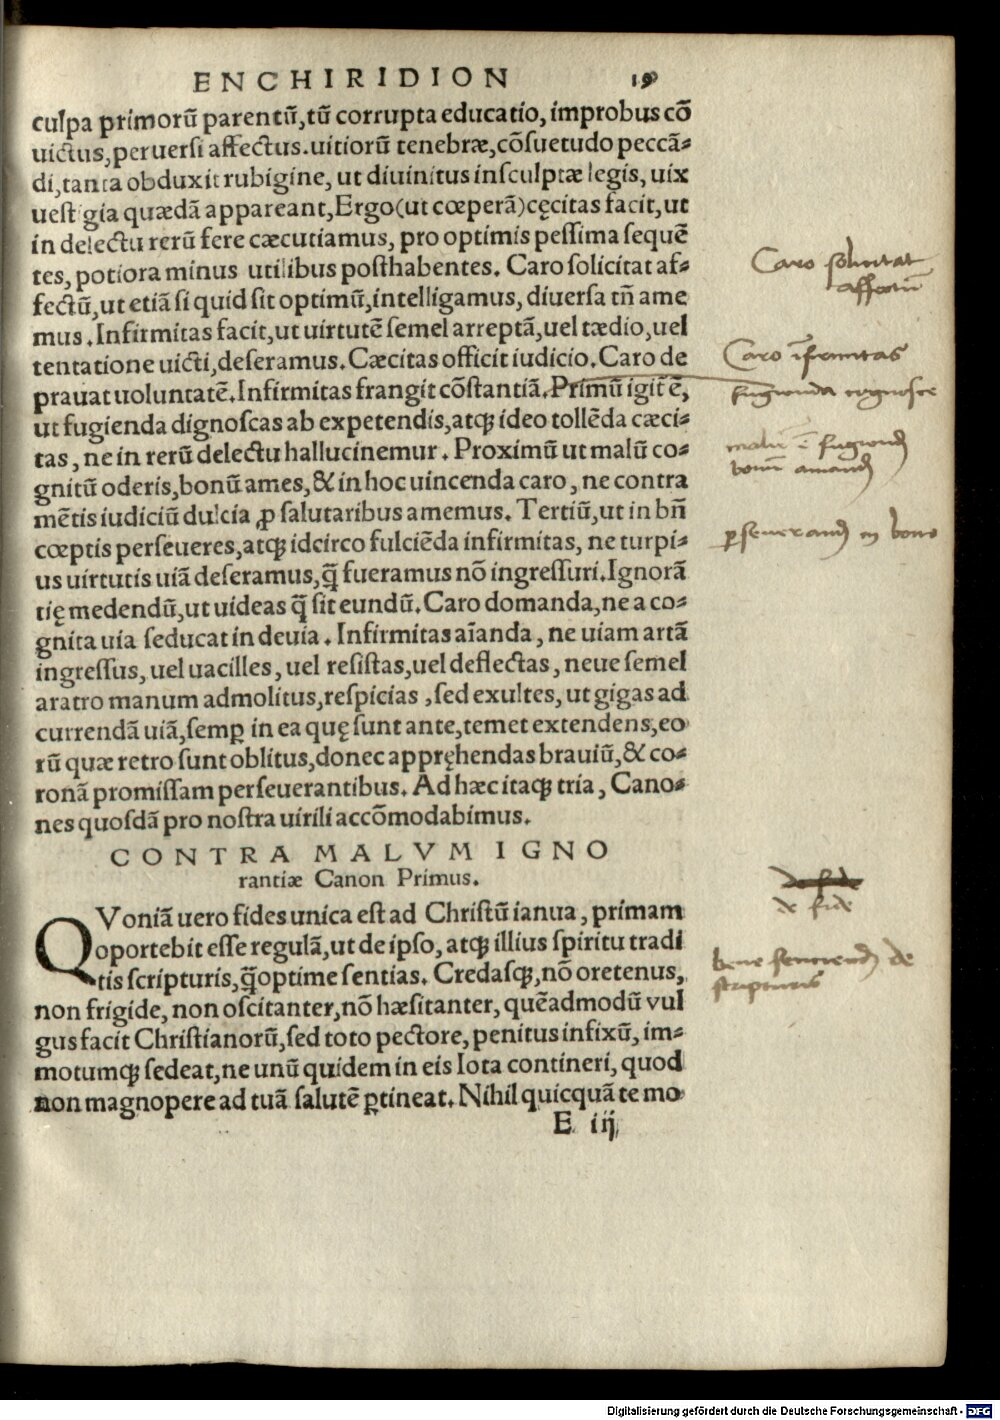 ENCHIRIDION 19
culpa primorū parentū, tū corrupta educatio, improbus cō
uictus, peruersi affectus. uitiorū tenebræ, cōsuetudo peccā-
di, tanta obduxit rubigine, ut diuinitus insculptæ legis, uix
uestigia quædā appareant, Ergo (ut cœperā) cęcitas facit, ut
in delectu rerū fere cæcutiamus, pro optimis pessima sequē
tes, potiora minus utilibus posthabentes. Caro solicitat af-
fectū, ut etiā si quid sit optimū, intelligamus, diuersa tñ ame
mus. Infirmitas facit, ut uirtutē semel arreptā, uel tædio, uel
tentatione uicti, deseramus. Cæcitas officit iudicio. Caro de
prauat uoluntatē. Infirmitas frangit cōstantiā. Primū igit ē,
ut fugienda dignoscas ab expetendis, atqꝫ ideo tollēda cæci-
tas, ne in rerū delectu hallucinemur. Proximū ut malū co-
gnitū oderis, bonū ames, & in hoc uincenda caro, ne contra
mētis iudiciū dulcia ꝓ salutaribus amemus. Tertiū, ut in bñ
cœptis perseueres, atqꝫ idcirco fulciēda infirmitas, ne turpi-
us uirtutis uiā deseramus, q̄ fueramus nō ingressuri. Ignorā
tię medendū, ut uideas q̄ sit eundū. Caro domanda, ne a co-
gnita uia seducat in deuia. Infirmitas aīanda, ne uiam artā
ingressus, uel uacilles, uel resistas, uel deflectas, neue semel
aratro manum admolitus, respicias, sed exultes, ut gigas ad
currendā uiā, semꝑ in ea quę sunt ante, temet extendens, eo
rū quæ retro sunt oblitus, donec appręhendas brauiū, & co-
ronā promissam perseuerantibus. Ad hæc itaqꝫ tria, Cano-
nes quosdā pro nostra uirili accōmodabimus.
CONTRA MALVM IGNO
rantiæ Canon Primus.
QVoniā uero fides unica est ad Christū ianua, primam
oportebit esse regulā, ut de ipso, atqꝫ illius spiritu tradi
tis scripturis, q̄ optime sentias. Credasqꝫ, nō oretenus,
non frigide, non oscitanter, nō hæsitanter, quēadmodū vul
gus facit Christianorū, sed toto pectore, penitus infixū, im-
motumqꝫ sedeat, ne unū quidem in eis Iota contineri, quod
non magnopere ad tuā salutē ꝑtineat. Nihil quicquā te mo
E iij
Caro solicitat
affectū
Caro īfirmitas
fugienda cognosce
malū
bonū
in bono
de fide
de fide
bene de
scripturis
Digitalisierung gefördert durch die Deutsche Forschungsgemeinschaft - DFG